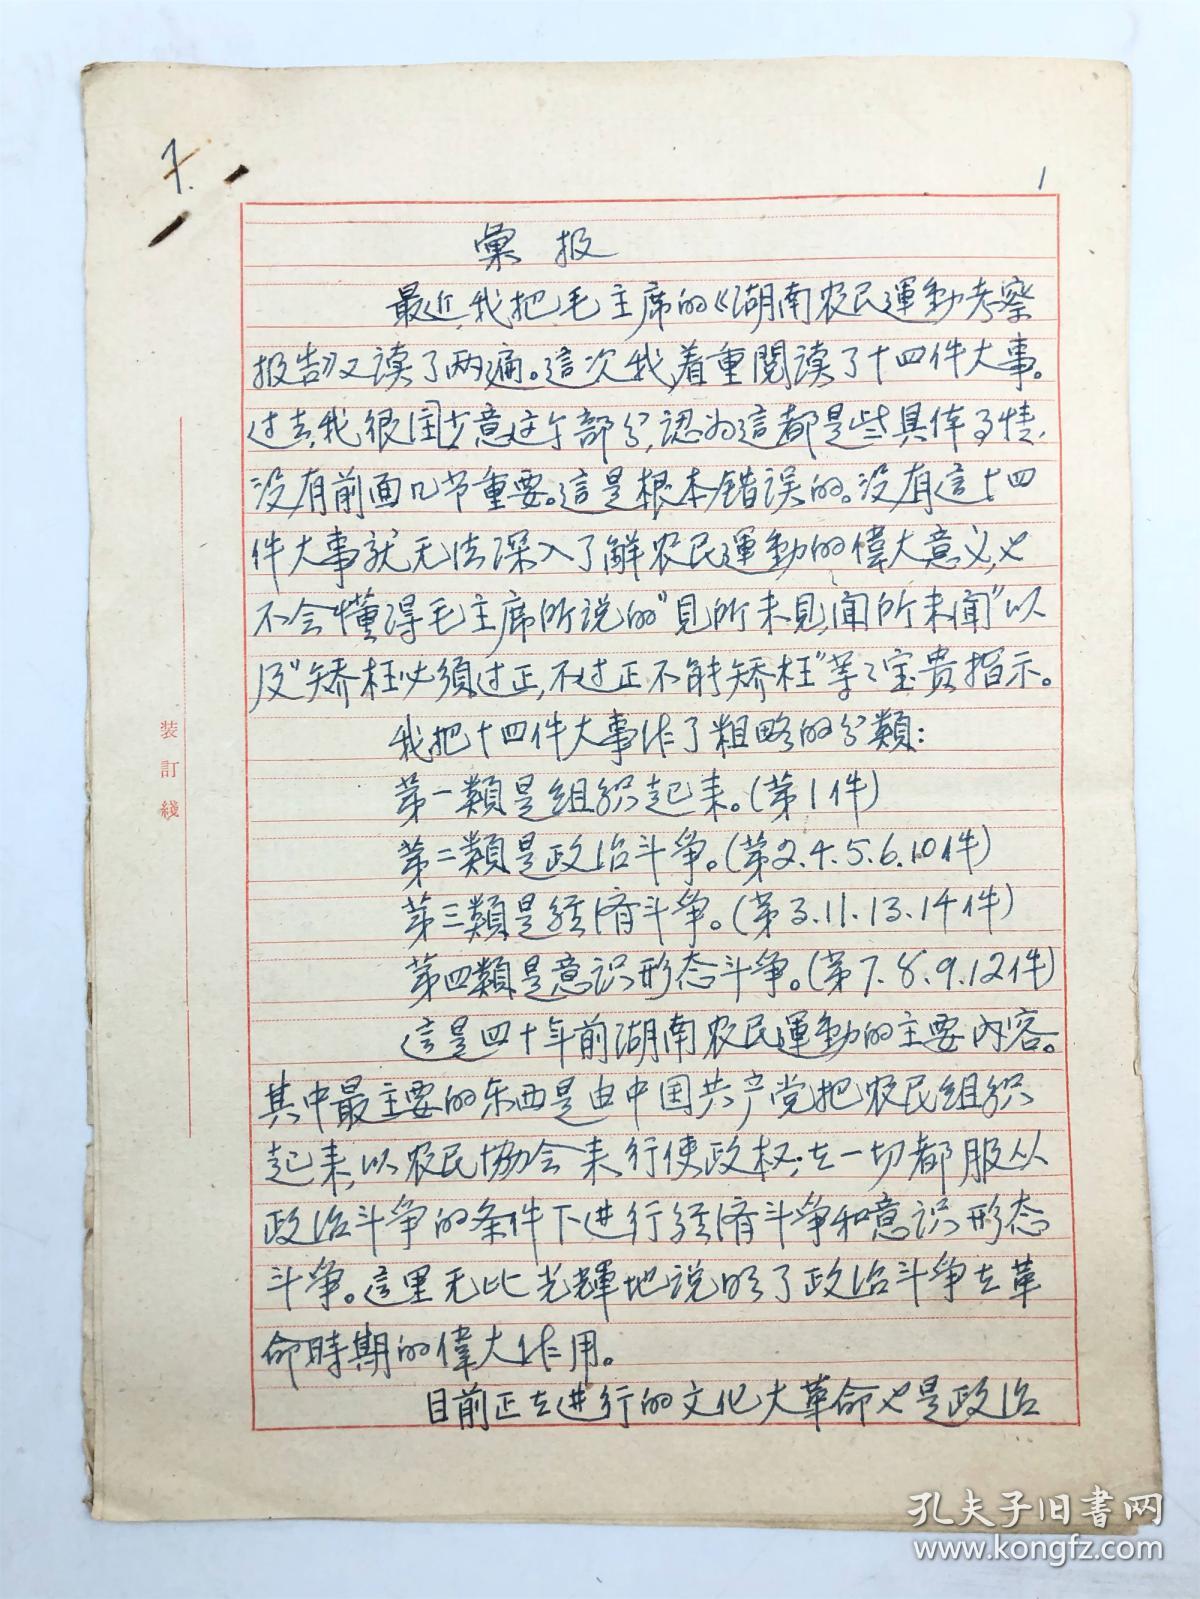 7.
1
彙报
最近,我把毛主席的《湖南农民運動考察
报告》又读了两遍。這次我,着重閱读了十四件大事。
过去,我很不注意这个部分,認为這都是些具体事情,
没有前面几节重要。這是根本错误的。没有這十四
件大事就无法深入了解农民運動的偉大意义,也
不会懂得毛主席所说的"見所未見,闻所未闻"以
及"矫枉必須过正,不过正不能矫枉"等等宝贵指示。
我把十四件大事作了粗略的分類:
第一類是组织起来。(第1件)
第二類是政治斗争。(第2.4.5.6.10件)
第三類是经济斗争。(第3.11.13.14件)
第四類是意识形态斗争。(第7.8.9.12件)
這是四十年前湖南农民運動的主要内容。
其中最主要的东西是由中国共产党把农民组织
起来,以农民协会来行使政权;在一切都服从
政治斗争的条件下进行经济斗争和意识形态
斗争。這里无比光輝地说明了政治斗争在革
命時期的偉大作用。
目前正在进行的文化大革命也是政治
装訂綫
孔夫子旧書网
www.kongfz.com